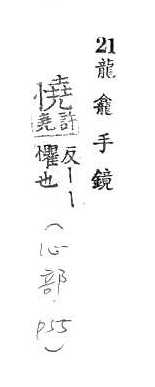 21 龍龕手鏡
憢 許堯反ーー懼也
（心部 p55）